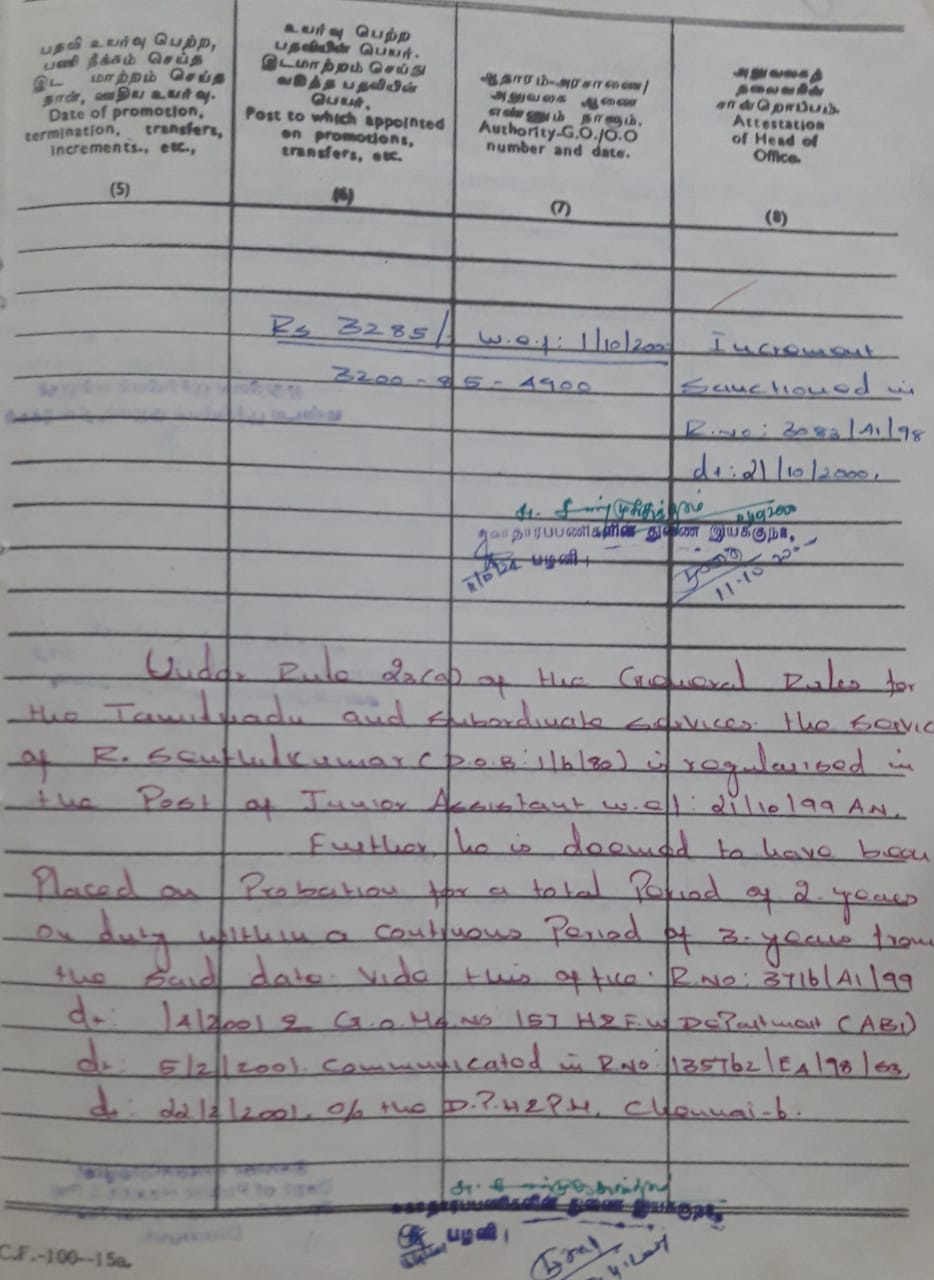 பதவி உயர்வு பெற்ற,
பணி நீக்கம் செய்த
இட மாற்றம் செய்த
நாள், ஊதிய உயர்வு.
Date of promotion,
termination, transfers,
increments., etc.,
(5)
உயர்வு பெற்ற
பதவியின் பெயர்.
இடமாற்றம் செய்து
வகித்த பதவியின்
பெயர்.
Post to which appointed
on promotions,
transfers, etc.
(6)
ஆதாரம்-அரசாணை/
அலுவலக ஆணை
எண்ணும் நாளும்.
Authority-G.O./O.O
number and date.
(7)
அலுவலகத்
தலைவரின்
சான்றொப்பம்.
Attestation
of Head of
Office.
(8)
Rs 3285/- w.e.f: 1/10/200 Increment
3200-85-4900 Sanctioned in
R.No: 3083/A1/98
dt: 21/10/2000.
சுகாதாரப்பணிகளின் துணை இயக்குநர்,
பழனி.
11.10.2000
Under Rule 23(a) of the General Rules for
the Tamilnadu and Subordinate Services. the Servic
of R. Senthilkumar (D.O.B: 1/6/80) is regularised in
the Post of Junior Assistant w.e.f: 21/10/99 AN.
Further, he is deemed to have been
Placed on Probation for a total Period of 2-years
on duty within a continuous Period of 3-years from
the said date. Vide this office. R.No: 3716/A1/99
dt: /4/2001 & G.O.Ms.No 157 H&F.W Department (AB1)
dt: 5/2/2001. Communicated in R.No: 135762/E4/98/S3,
dt: 22/2/2001. O/o the D.P.H&P.M, Chennai-6.
சுகாதாரப்பணிகளின் துணை இயக்குநர்,
பழனி.
C.F.-100--15a.